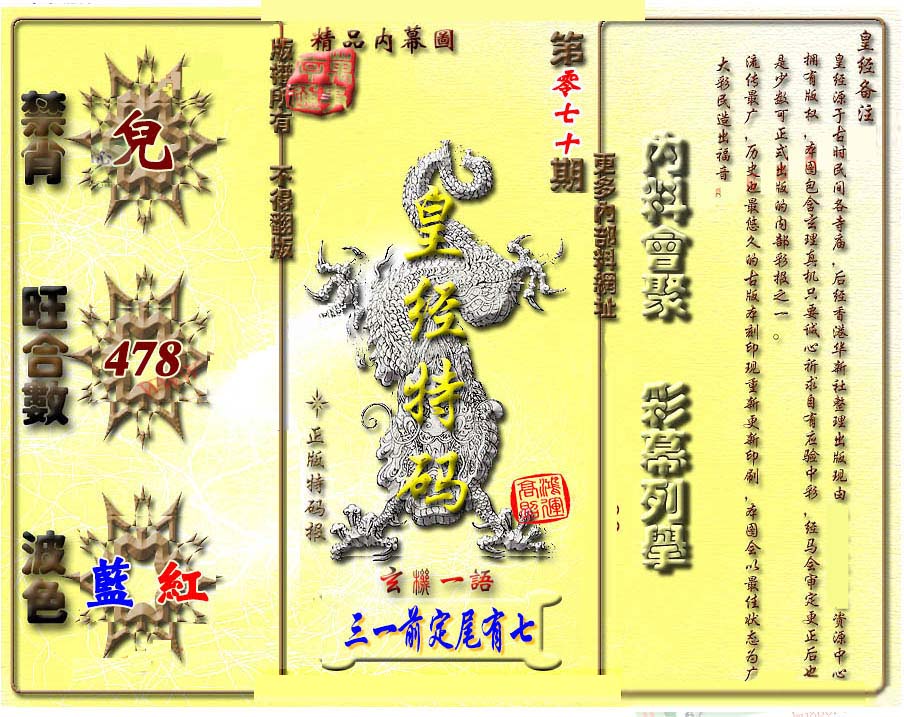 精品内幕圖
第零七十期
版權所有 不得翻版
更多內部料網址
禁肖
兒
旺合數
478
波色
藍 紅
皇经特码
正版特码报
鴻運高照
玄機一語
三一前定尾有七
内料會聚
彩幕列舉
皇经备注
皇经源于古时民间各寺庙，后经香港华新社整理出版现由 资源中心
拥有版权，本图包含玄理真机只要诚心祈求自有应验中彩，经马会审定更正后也
是少数可正式出版的内部彩报之一。
流传最广，历史也最悠久的古版本刻印现重新更新印刷，本图会以最佳状态为广
大彩民造出福音